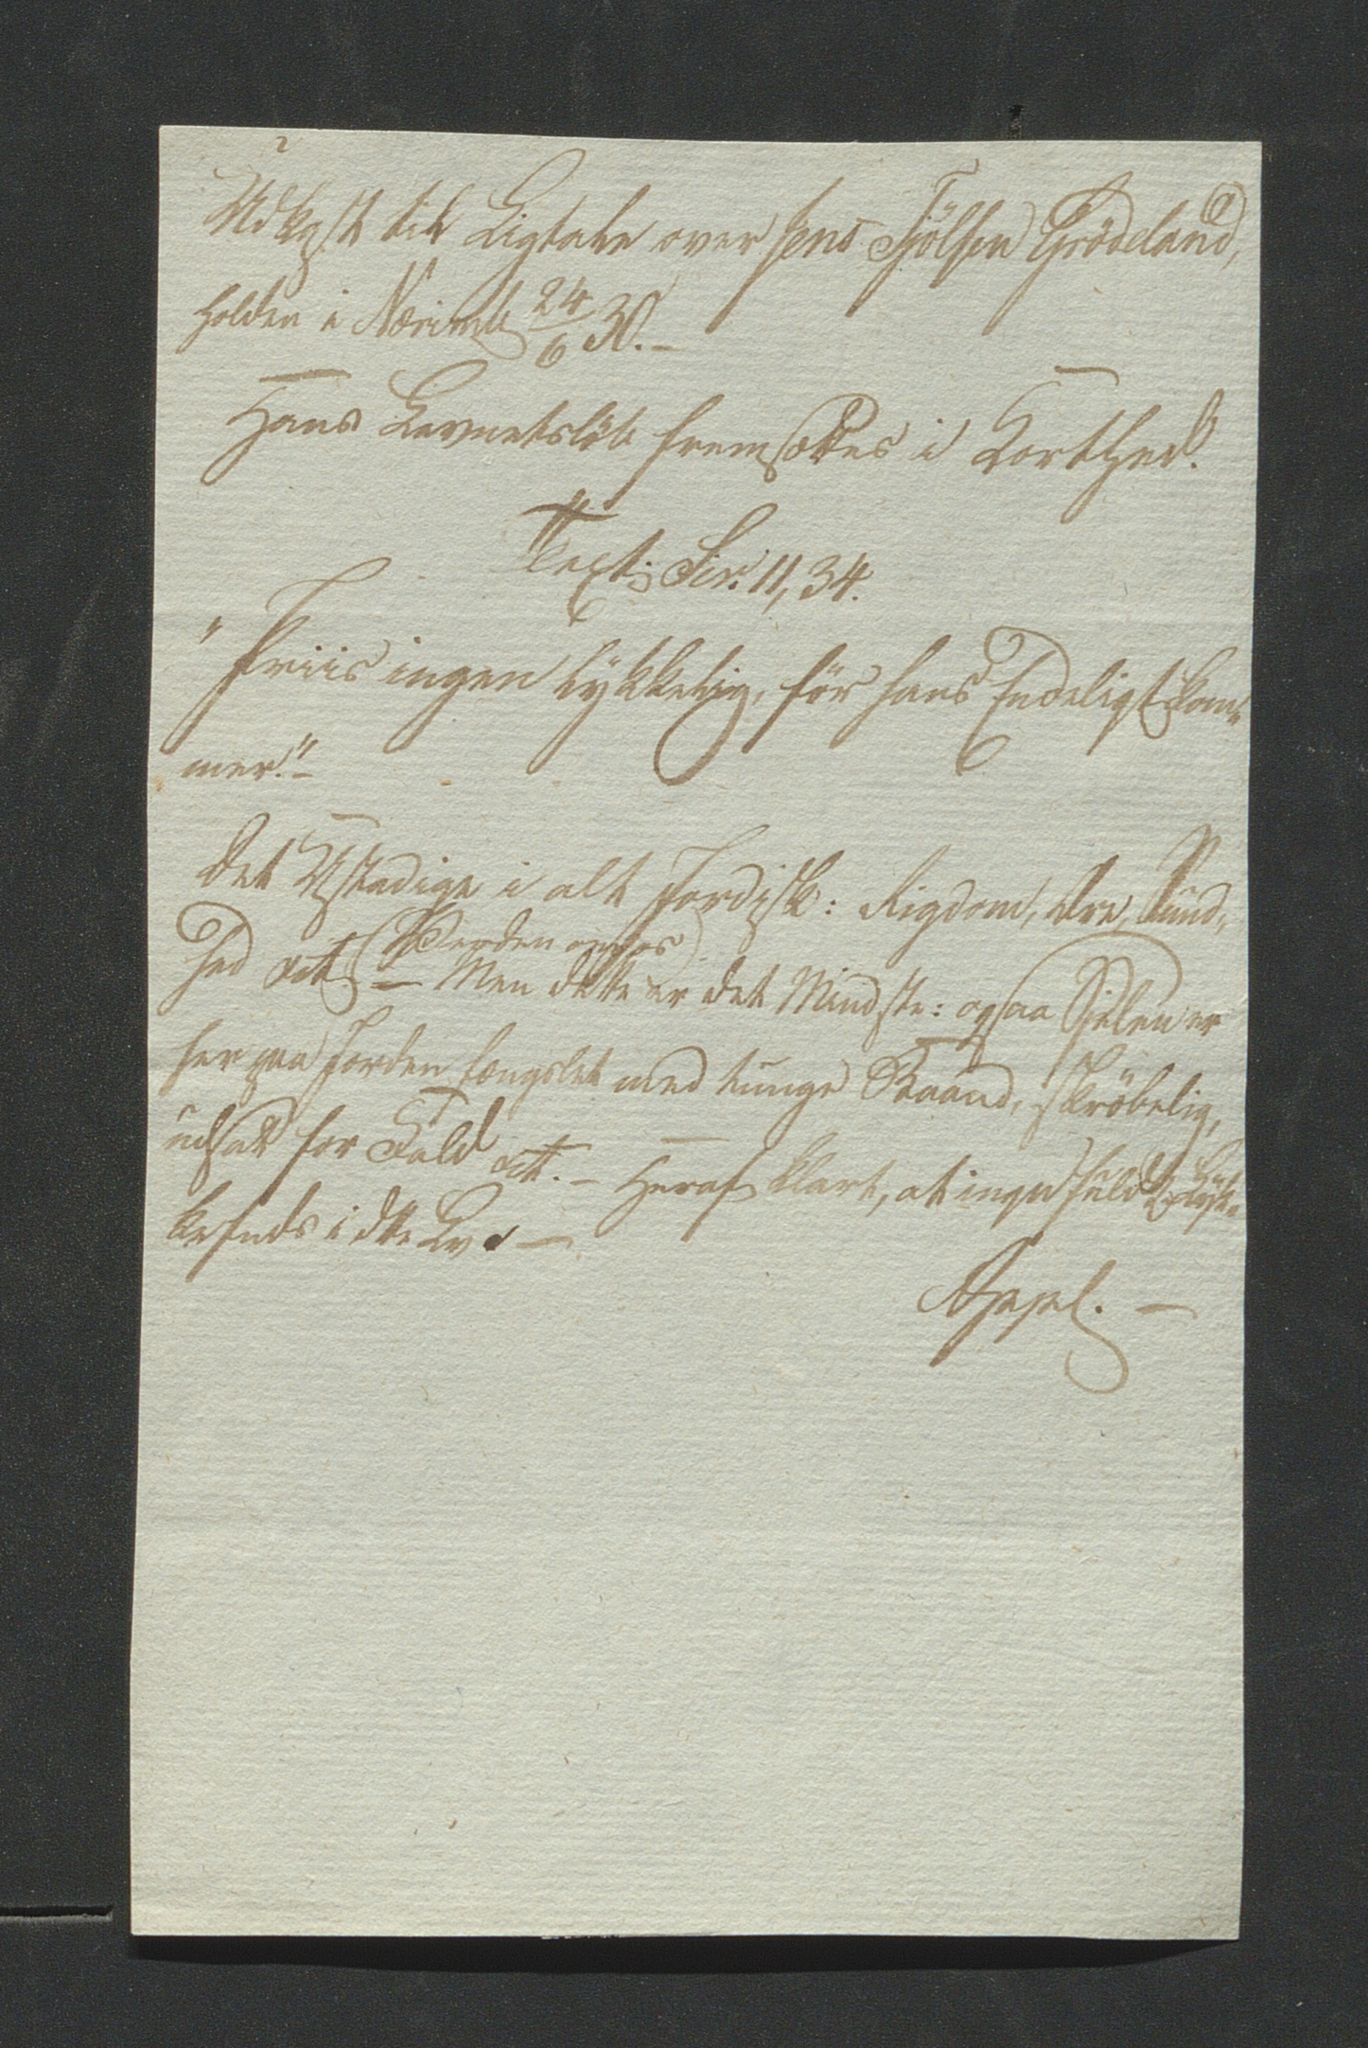 Udkast til Ligtale over Jens Tjölsen Grödeland,
holden i Nærimb 24/6 30.–
Hans Levnetslöb fremsættes i Korthed.
Text: Sir. 11, 34.
"Priis ingen lykkelig, för hans Endeligt kom-
mer."–
Det Ustadige i alt Jordisk: Rigdom, Ære, Sund-
hed ect (Verden opgos) – Men dette er det Mindste: ogsaa Sjelen er
her paa Jorden fængslet med tunge Baand, skröbelig,
udsat for Fald ect. – Heraf klart, at ingen fuld Lyk-
ke finds i dtte Liv –
Appl. –